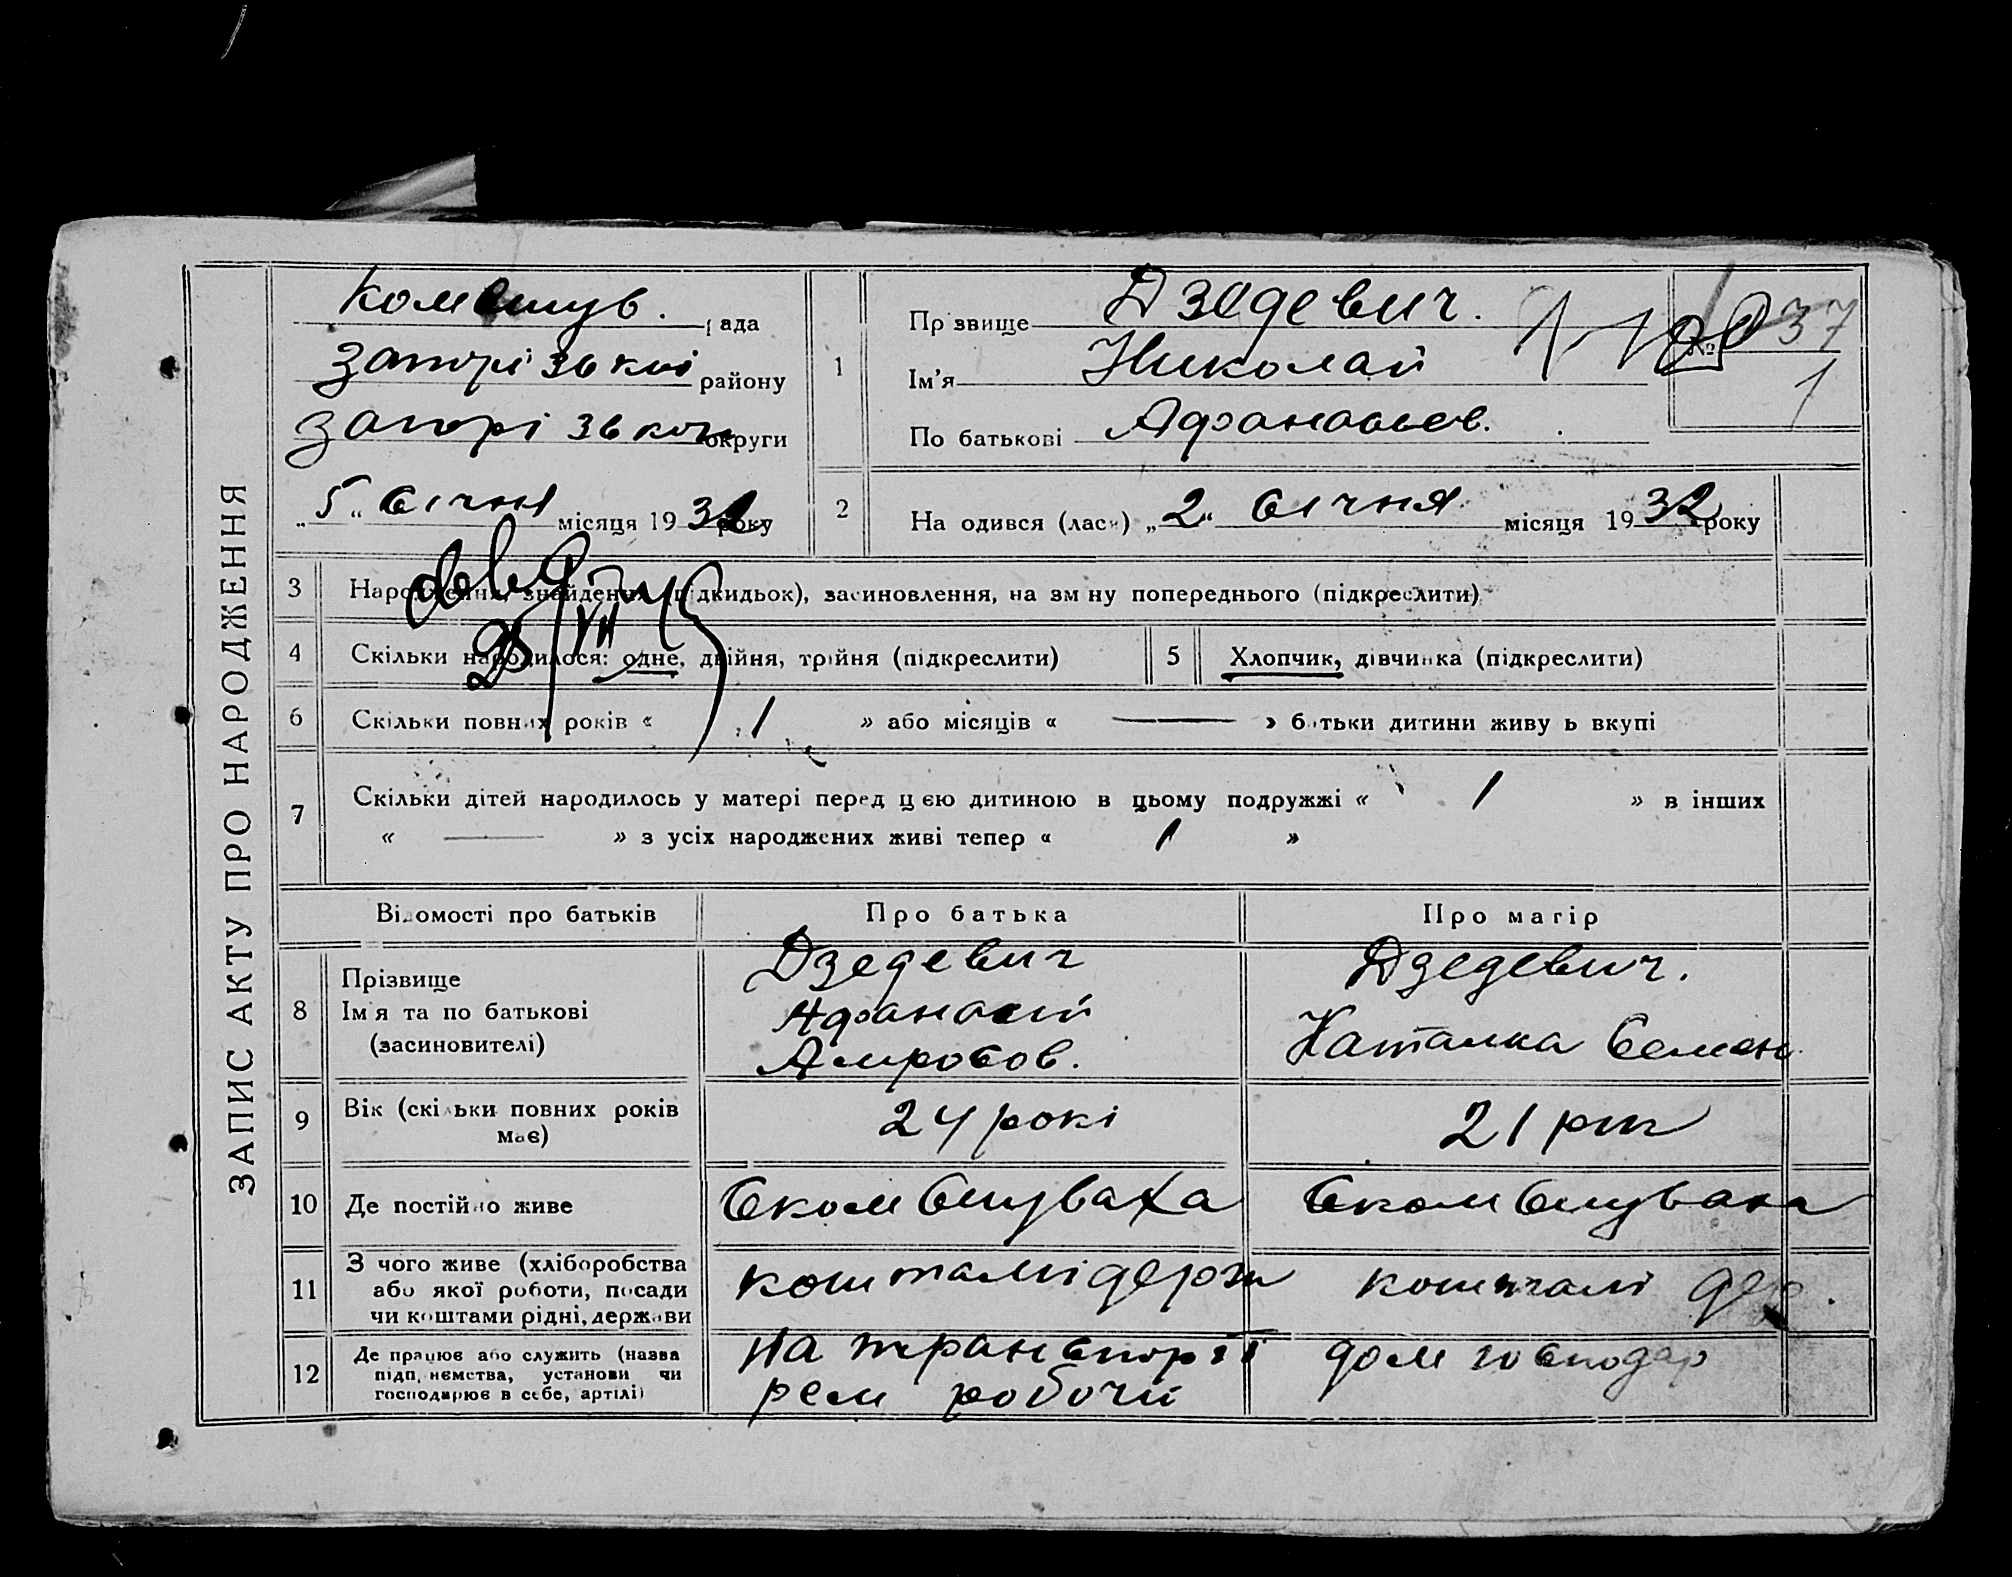 ЗАПИС АКТУ ПРО НАРОДЖЕННЯ
Комишув. рада
Запорізької району
Запорізької округи
„5“ січня місяця 1932 року
1
Прізвище Дзедевич.
Ім'я Николай
По батькові Афанасьев.
№ 37
1
2
Народився (лась) „2“ січня місяця 1932 року
3 Народження, знайдення (підкидьок), засиновлення, на зміну попереднього (підкреслити)
4 Скільки народилося: одне, двійня, трійня (підкреслити)
5 Хлопчик, дівчинка (підкреслити)
6 Скільки повних років « 1 » або місяців « — » батьки дитини живуть вкупі
7 Скільки дітей народилось у матері перед цією дитиною в цьому подружжі « 1 » в інших
« — » з усіх народжених живі тепер « 1 »
Відомості про батьків Про батька Про матір
8 Прізвище
Ім'я та по батькові
(засиновителі)
Дзедевич
Афанасій
Амросов.
Дзедевич.
Наталка Семен.
9 Вік (скільки повних років має)
24 рокі
21 рік
10 Де постійно живе
С ком Сшуваха
С ком Сшуваха
11 З чого живе (хліборобства
або якої роботи, посади
чи коштами рідні, держави
коштамі держ
коштамі дер.
12 Де працює або служить (назва
підприємства, установи чи
господарює в себе, артілі)
На транспорті
рем робочи
дом господар